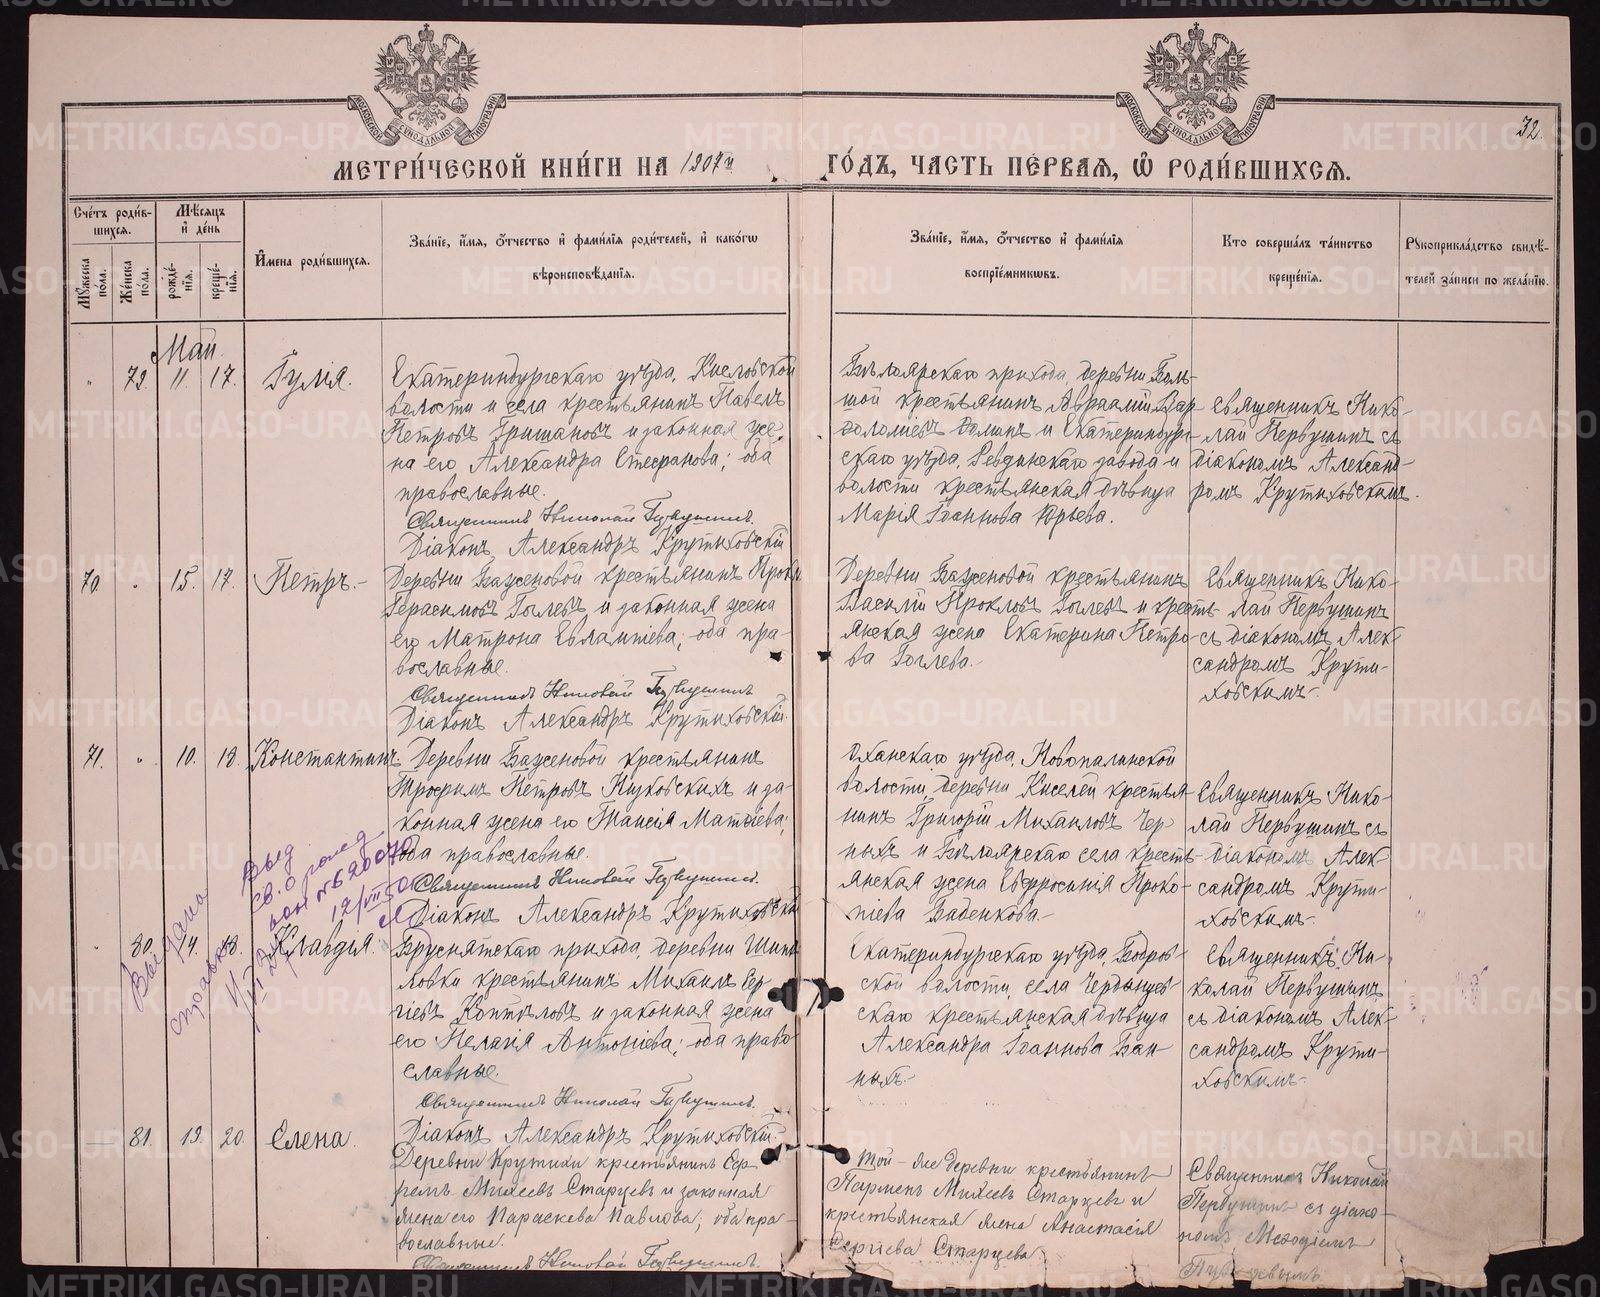 МОСКОВСКОЙ СУНОДАЛЬНОЙ ТИПОГРАФІИ
МОСКОВСКОЙ СУНОДАЛЬНОЙ ТИПОГРАФІИ
32.
МЕТРИ́ЧЕСКОЙ КНИ́ГИ НА 1907й
ГО́ДЪ, ЧАСТЬ ПЕ́РВАЯ, Ѡ РОДИ́ВШИХСЯ.
Сче́тъ роди́в-
шихся.
Мѣ́сяцъ
и де́нь
Му́жеска
по́ла.
Же́нска
по́ла.
рожде́-
нїя.
креще́-
нїя.
И́мена роди́вшихся.
Зва́нїе, и́мя, о́тчество и фами́лїя роди́телей, и како́гѡ
вѣроисповѣ́данїя.
Зва́нїе, и́мя, о́тчество и фами́лїя
воспрїе́мникѡвъ.
Кто соверша́лъ та́инство
креще́нїя.
Рукоприкла́дство свидѣ́-
телей за́писи по жела́нїю.
Май
" 79. 11. 17. Іулія.
Екатеринбургскаго уѣзда, Кисловской
волости и села крестьянинъ Павелъ
Петровъ Гришановъ и законная же-
на его Александра Стефанова; оба
православные.
Священникъ Николай Первушинъ.
Діаконъ Александръ Крутиховскій
Бѣлоярскаго прихода, деревни Боль-
шой крестьянинъ Авраамій Вар-
ѳоломеевъ и Екатеринбург-
скаго уѣзда, Ревдинскаго завода и
волости крестьянская дѣвица
Марія Іоаннова Юрьева.
Священникъ Нико-
лай Первушинъ съ
діакономъ Александ-
ромъ Крутиховскимъ.
70. " 15. 17. Петръ.-
Деревни Баженовой крестьянинъ
Герасимовъ Гоглевъ и законная жена
его Матрона Евлампіева; оба пра-
вославные.
Священникъ Николай Первушинъ
Діаконъ Александръ Крутиховскій.
Деревни Баженовой крестьянинъ
Василій Прокловъ Гоглевъ и кресть-
янская жена Екатерина Петро-
ва Гоглева.-
Священникъ Нико-
лай Первушинъ
съ діакономъ Алек-
сандромъ Крути-
ховскимъ.-
71. " 10. 18. Константинъ.
Деревни Баженовой крестьянинъ
Трофимъ Петровъ Низковскихъ и за-
конная жена его Таисія Матѳіева;
оба православные.
Священникъ Николай Первушинъ.
Діаконъ Александръ Крутиховскій
Оханскаго уѣзда, Новопаинской
волости, деревни Киселей крестья-
нинъ Григорій Михаиловъ Чер-
ныхъ и Бѣлоярскаго села кресть-
янская жена Евфросинія Проко-
піева Баденкова.-
Священникъ Нико-
лай Первушинъ съ
діакономъ Алек-
сандромъ Крути-
ховскимъ.-
Выдана
справка
" 80. 14. 18. Клавдія.
Бруснятскаго прихода, деревни
ловки крестьянинъ Михаилъ Сер-
гіевъ Коптѣловъ и законная жена
его Пелагія Антоніева; оба право-
славные.
Священникъ Николай Первушинъ.
Діаконъ Александръ Крутиховскій.
Екатеринбургскаго уѣзда, Бобров-
ской волости, села Чердынцев-
скаго крестьянская дѣвица
Александра Іоаннова Бан-
ныхъ.-
Священникъ Ни-
колай Первушинъ
съ діакономъ Алек-
сандромъ Крути-
ховскимъ.-
— 81. 19. 20. Елена.
Деревни Крутихи крестьянинъ Еф-
ремъ Михеевъ Старцевъ и законная
жена его Параскева Павлова; оба пра-
вославные.
Священникъ Николай Первушинъ.
Той-же деревни крестьянинъ
Парменъ Михеевъ Старцевъ и
крестьянская жена Анастасія
Сергіева Старцева
Священникъ Николай
Первушинъ съ діако-
номъ Меѳодіемъ